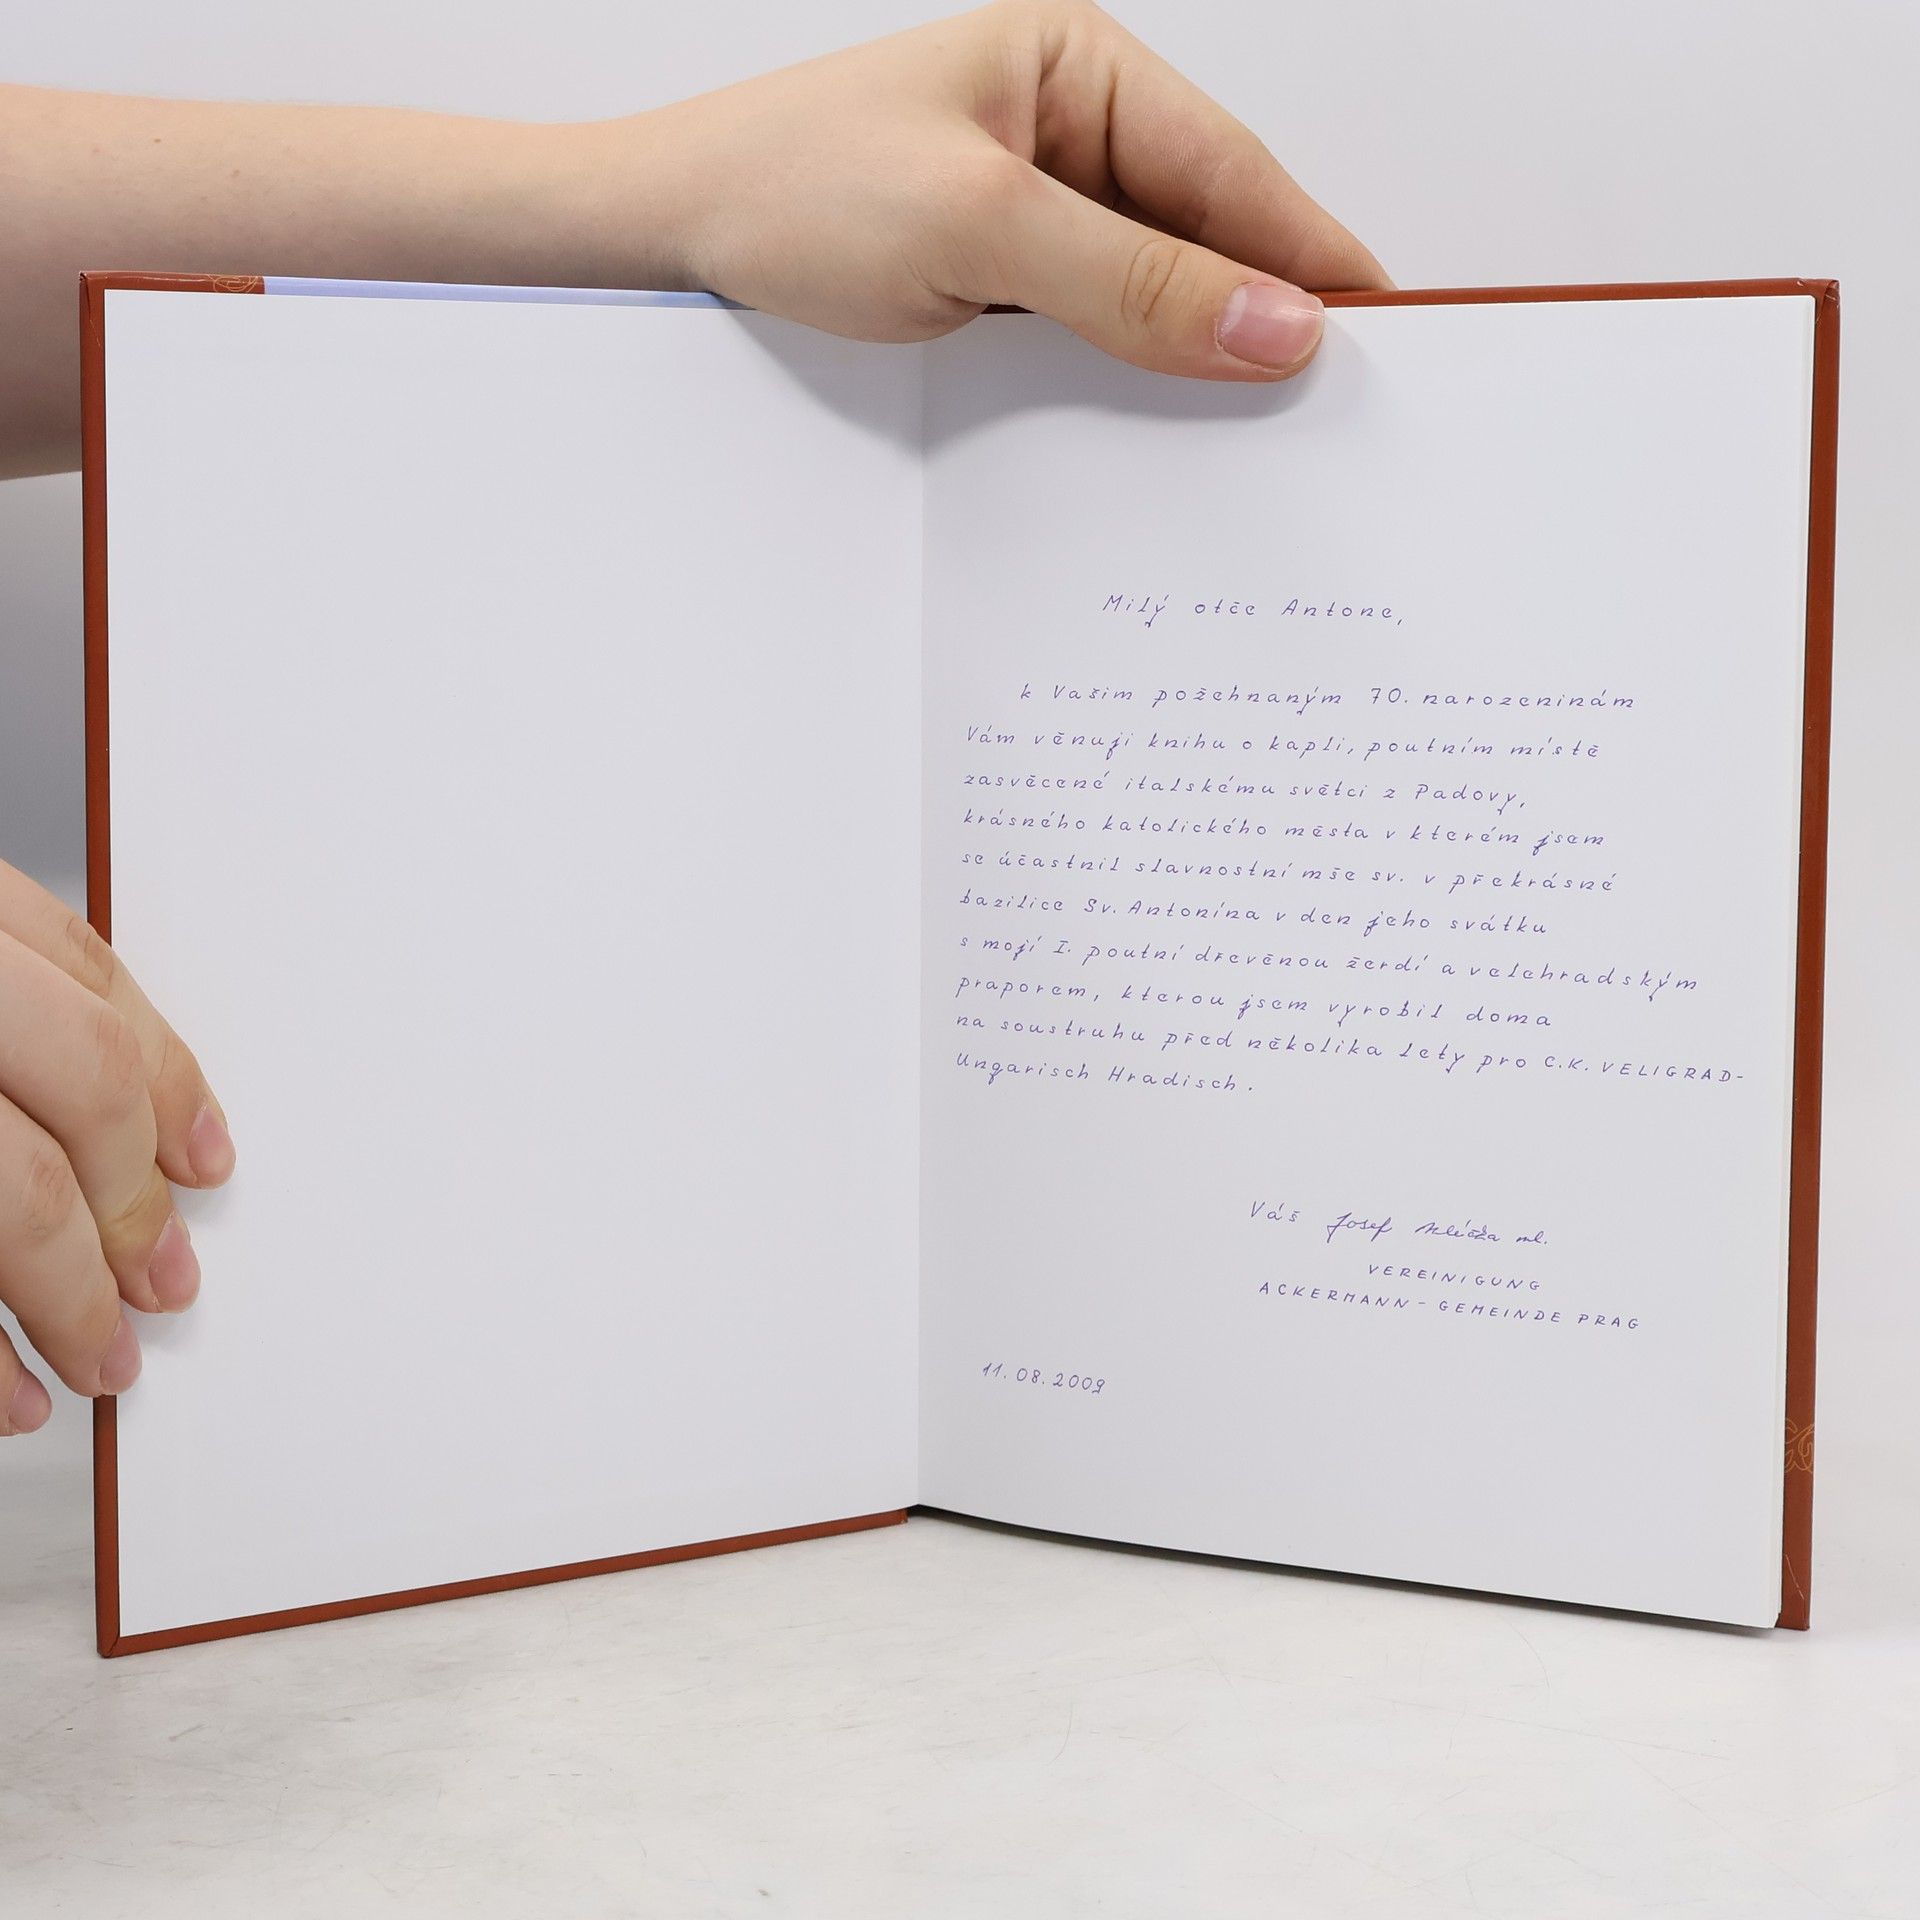 Milý otče Antone,
k Vašim požehnaným 70. narozeninám
Vám věnuji knihu o kapli, poutním místě
zasvěcené italskému světci z Padovy,
krásného katolického města v kterém jsem
se účastnil slavnostní mše sv. v překrásné
bazilice Sv. Antonína v den jeho svátku
s mojí I. poutní dřevěnou žerdí a velehradským
praporem, kterou jsem vyrobil doma
na soustruhu před několika lety pro C.K. VELIGRAD-
Ungarisch Hradisch.
Váš Josef ml.
VEREINIGUNG
ACKERMANN-GEMEINDE PRAG
11.08.2009